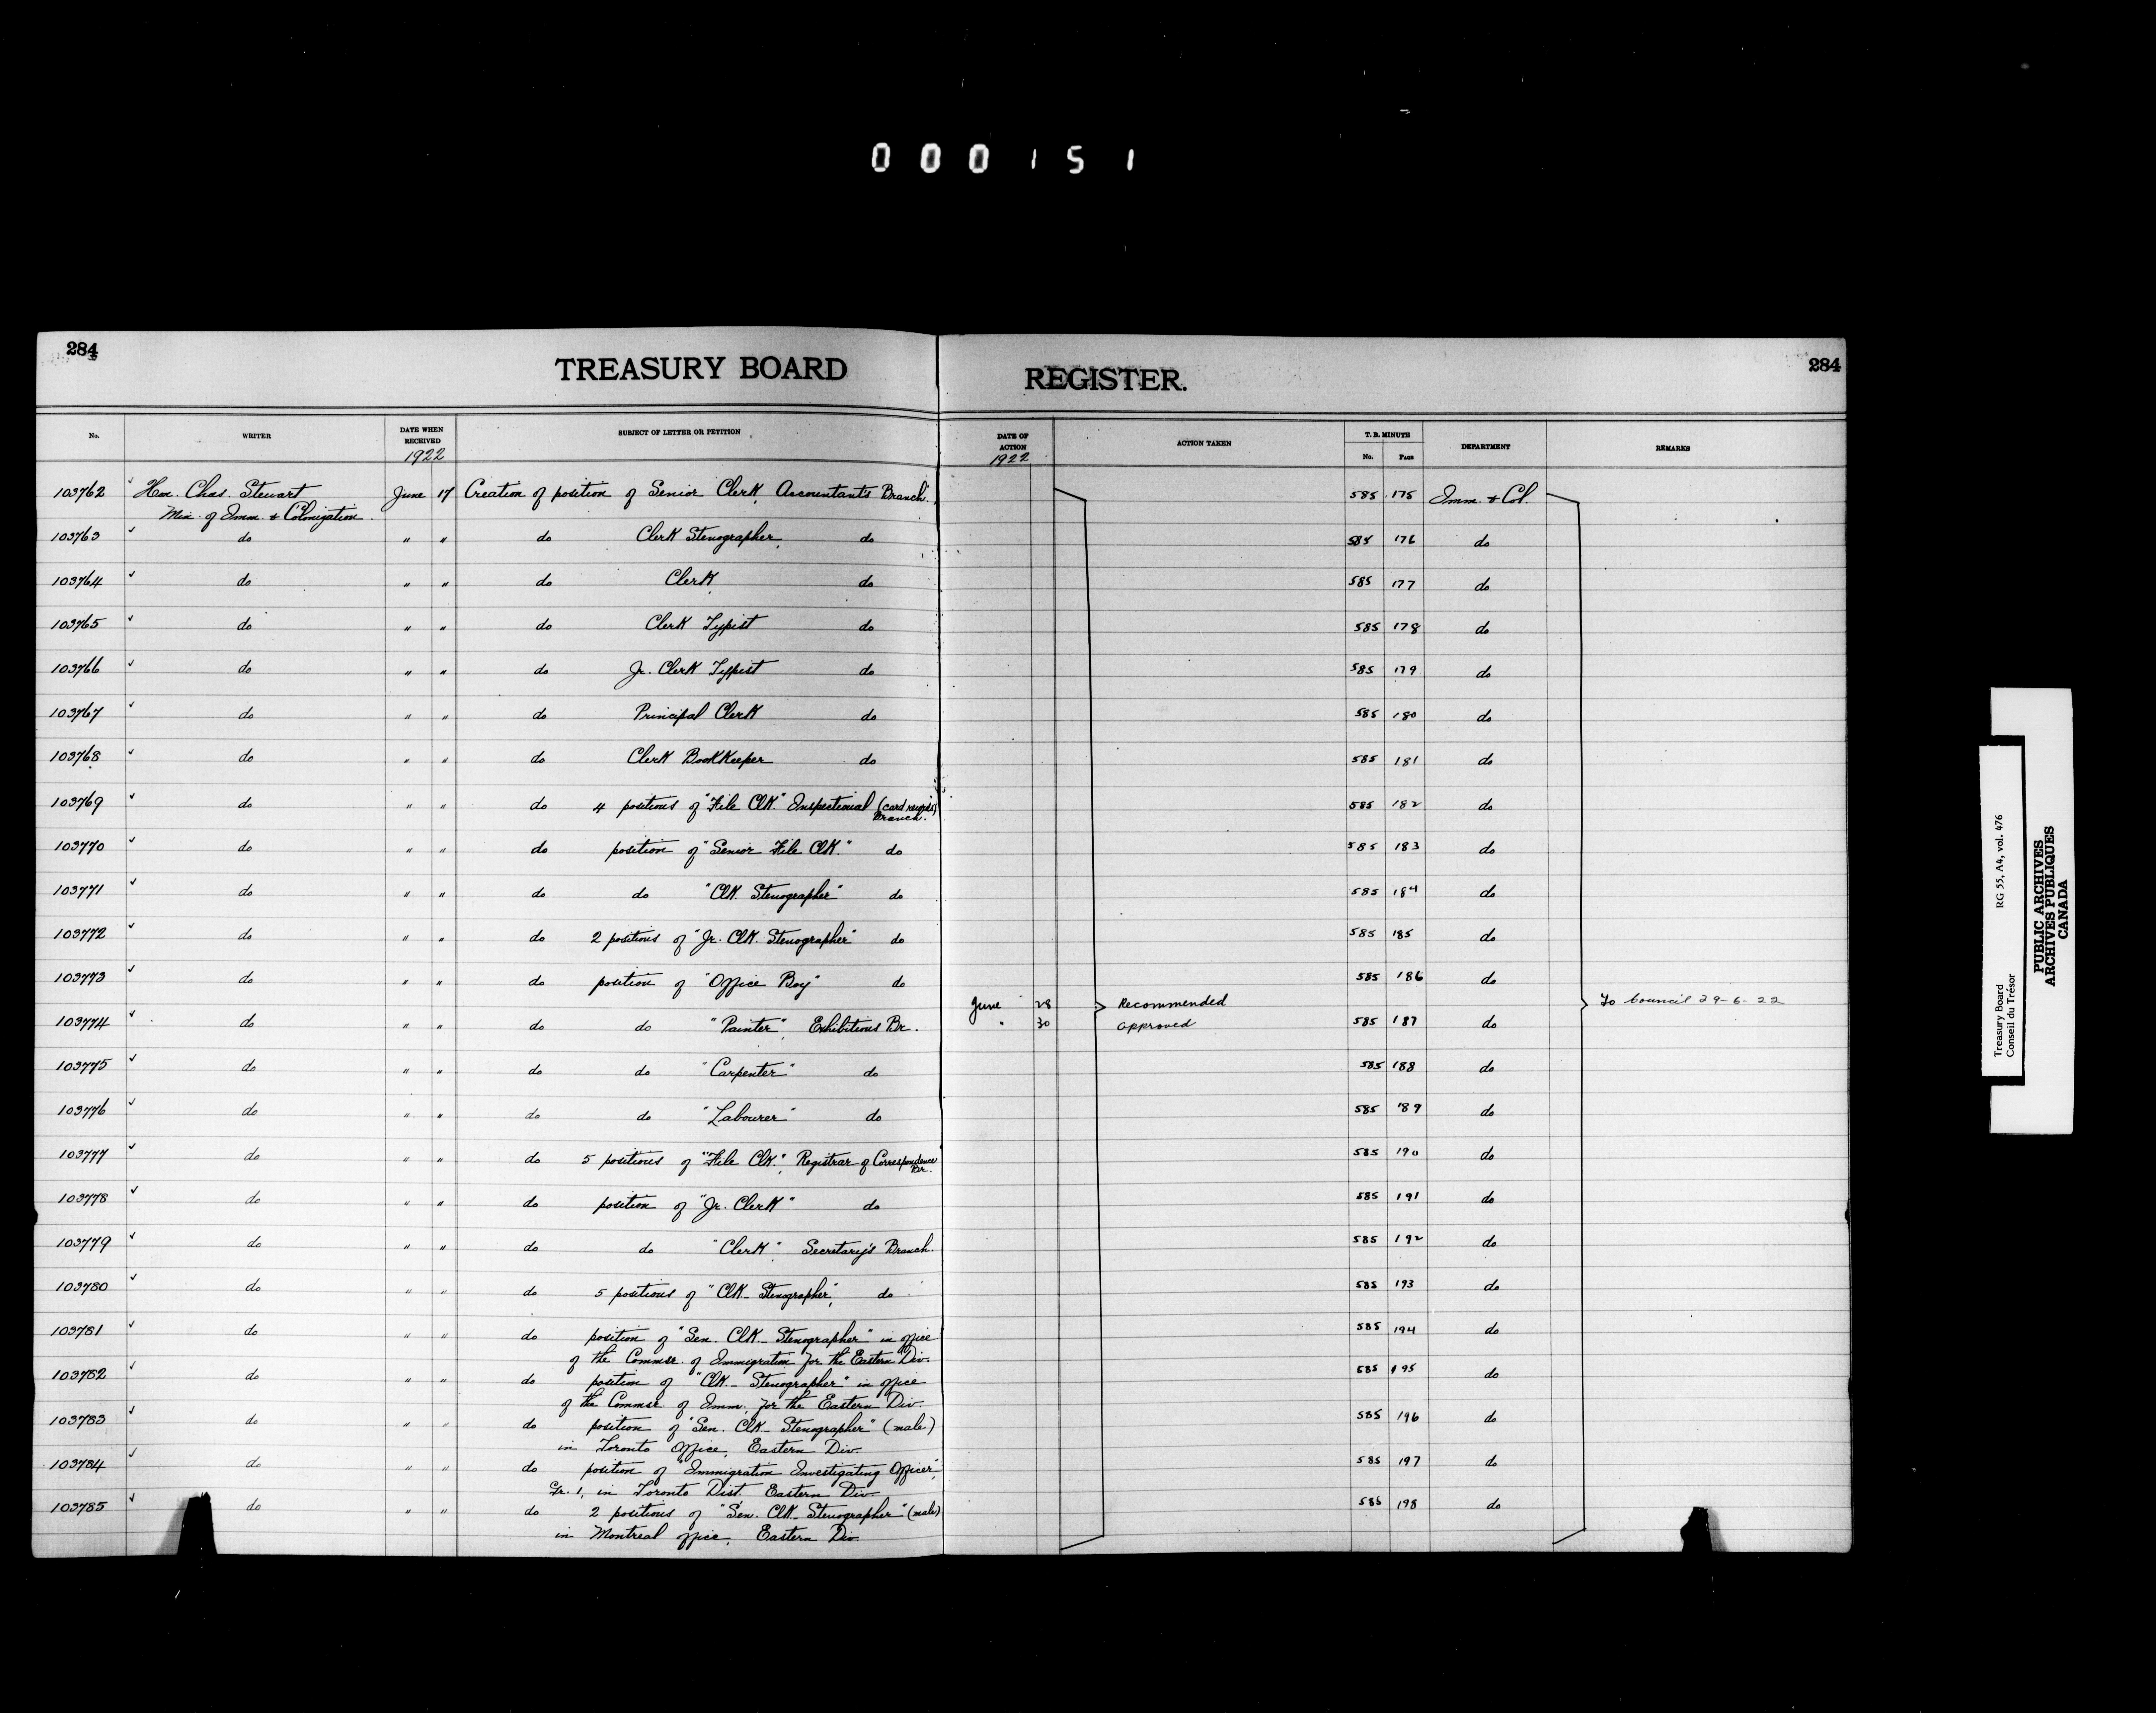 000151
284 TREASURY BOARD REGISTER. 284
No. WRITER DATE WHEN RECEIVED 1922 SUBJECT OF LETTER OR PETITION DATE OF ACTION 1922 ACTION TAKEN T. B. MINUTE No. PAGE DEPARTMENT REMARKS
103762 Hon. Chas. Stewart June 17 Creation of position of "Senior Clerk", Accountant's Branch. 585 175 Imm. & Col.
Min. of Imm. & Colonization.
103763 do " " do Clerk Stenographer, do 585 176 do
103764 do " " do Clerk, do 585 177 do
103765 do " " do Clerk Typist do 585 178 do
103766 do " " do Jr. Clerk Typist do 585 179 do
103767 do " " do Principal Clerk do 585 180 do
103768 do " " do Clerk Bookkeeper do 585 181 do
103769 do " " do 4 positions of "File Clk." Inspectional (card records) 585 182 do
Branch.
103770 do " " do position of "Senior File Clk." do 585 183 do
103771 do " " do do "Clk. Stenographer" do 585 184 do
103772 do " " do 2 positions of "Jr. Clk. Stenographer" do 585 185 do
103773 do " " do position of "Office Boy" do 585 186 do
June 28 Recommended To Council 29-6-22
103774 do " " do do "Painter", Exhibitions Br. " 30 approved 585 187 do
103775 do " " do do "Carpenter" do 585 188 do
103776 do " " do do "Labourer" do 585 189 do
103777 do " " do 5 positions of "File Clk.", Registrar of Correspondence 585 190 do
Br.
103778 do " " do position of "Jr. Clerk" do 585 191 do
103779 do " " do do "Clerk", Secretary's Branch. 585 192 do
103780 do " " do 5 positions of "Clk-Stenographer", do 585 193 do
103781 do " " do position of "Sen. Clk-Stenographer" in office 585 194 do
of the Commsr. of Immigration for the Eastern Div.
103782 do " " do position of "Clk.-Stenographer" in office 585 195 do
of the Commsr. of Imm. for the Eastern Div.
103783 do " " do position of "Sen. Clk-Stenographer" (male) 585 196 do
in Toronto Office, Eastern Div.
103784 do " " do position of "Immigration Investigating Officer", 585 197 do
Gr. 1, in Toronto Dist. Eastern Div.
103785 do " " do 2 positions of "Sen. Clk-Stenographer" (male) 585 198 do
in Montreal office, Eastern Div.
Treasury Board RG 55, A4, vol. 476
Conseil du Trésor
PUBLIC ARCHIVES
ARCHIVES PUBLIQUES
CANADA